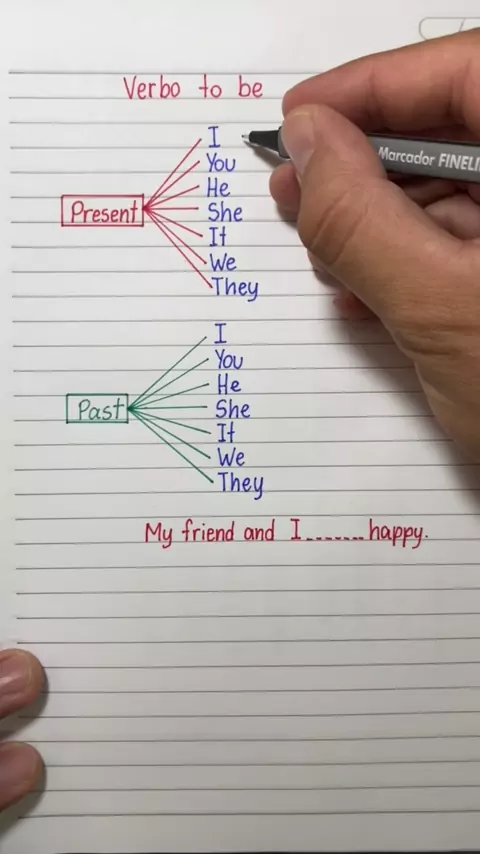 Verbo to be
Present
I
You
He
She
It
We
They
Past
I
You
He
She
It
We
They
My friend and I ------- happy.
Marcador